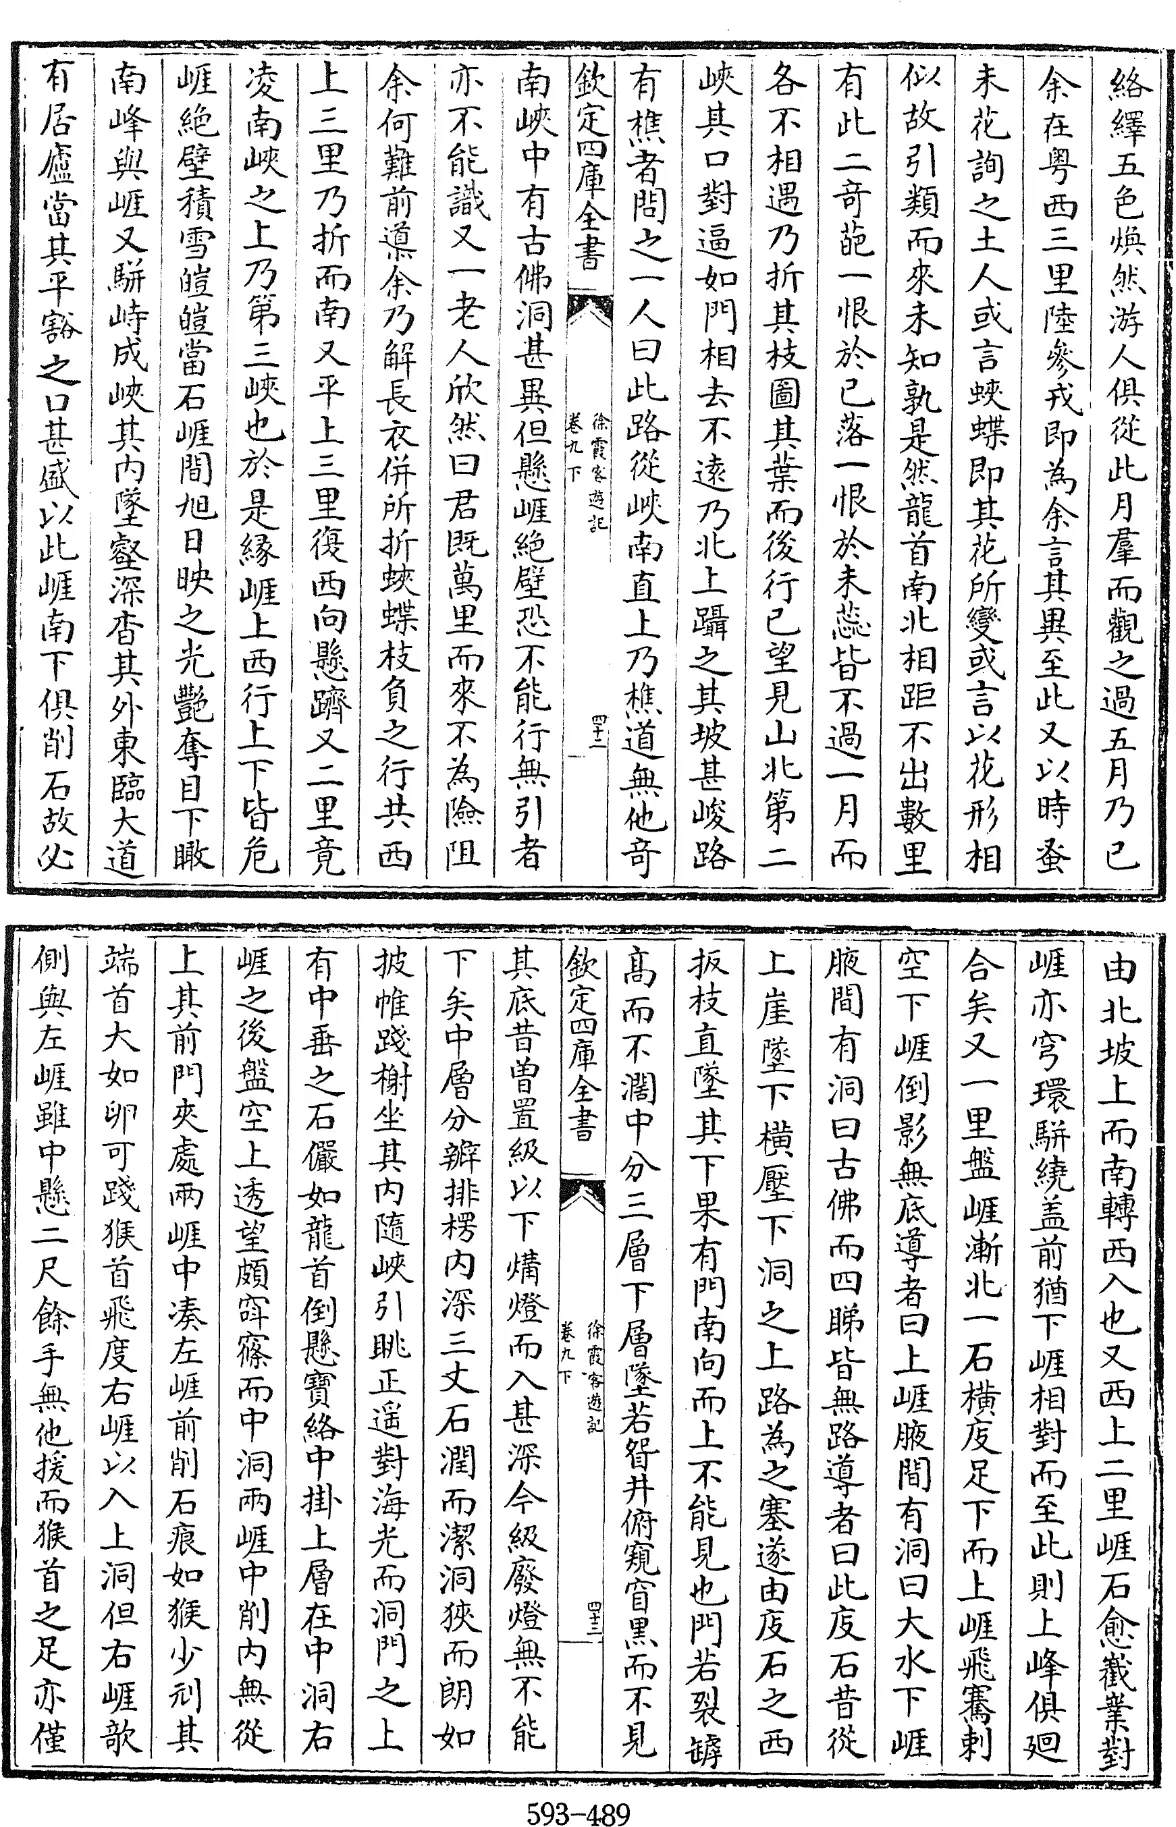 絡繹五色煥然游人俱從此月羣而觀之過五月乃已
余在粤西三里陸參戎即為余言其異至此又以時蚤
未花詢之土人或言蛺蝶即其花所變或言以花形相
似故引類而來未知孰是然龍首南北相距不出數里
有此二奇葩一恨於已落一恨於未蕊皆不過一月而
各不相遇乃折其枝圖其葉而後行已望見山北第二
峽其口對逼如門相去不遠乃北上躡之其坡甚峻路
有樵者問之一人曰此路從峽南直上乃樵道無他奇
欽定四庫全書
徐霞客遊記
卷九下
四十二
南峽中有古佛洞甚異但懸崕絶壁恐不能行無引者
亦不能識又一老人欣然曰君既萬里而來不為險阻
余何難前導余乃解長衣併所折蛺蝶枝負之行共西
上三里乃折而南又平上三里復西向懸躋又二里竟
凌南峽之上乃第三峽也於是縁崕上西行上下皆危
崕絶壁積雪皚皚當石崕間旭日映之光艷奪目下瞰
南峰與崕又駢峙成峽其内墜壑深杳其外東臨大道
有居廬當其平豁之口甚盛以此崕南下俱削石故必
由北坡上而南轉西入也又西上二里崕石愈巀業對
崕亦穹環駢繞盖前猶下崕相對而至此則上峰俱廻
合矣又一里盤崕漸北一石横庋足下而上崕飛騫刺
空下崕倒影無底導者曰上崕腋間有洞曰大水下崕
腋間有洞曰古佛而四睇皆無路導者曰此庋石昔從
上崖墜下横壓下洞之上路為之塞遂由庋石之西
扳枝直墜其下果有門南向而上不能見也門若裂罅
高而不濶中分三層下層墜若眢井俯窺窅黒而不見
欽定四庫全書
徐霞客遊記
卷九下
四十三
其底昔曽置級以下爇燈而入甚深今級廢燈無不能
下矣中層分辧排楞内深三丈石潤而潔洞狹而朗如
披帷踐榭坐其内隨峽引眺正遥對海光而洞門之上
有中垂之石儼如龍首倒懸寶絡中掛上層在中洞右
崕之後盤空上透望頗窙窱而中洞兩崕中削内無從
上其前門夾處兩崕中凑左崕前削石痕如猴少刓其
端首大如卵可踐猴首飛度右崕以入上洞但右崕欹
側與左崕雖中懸二尺餘手無他援而猴首之足亦僅
593-489